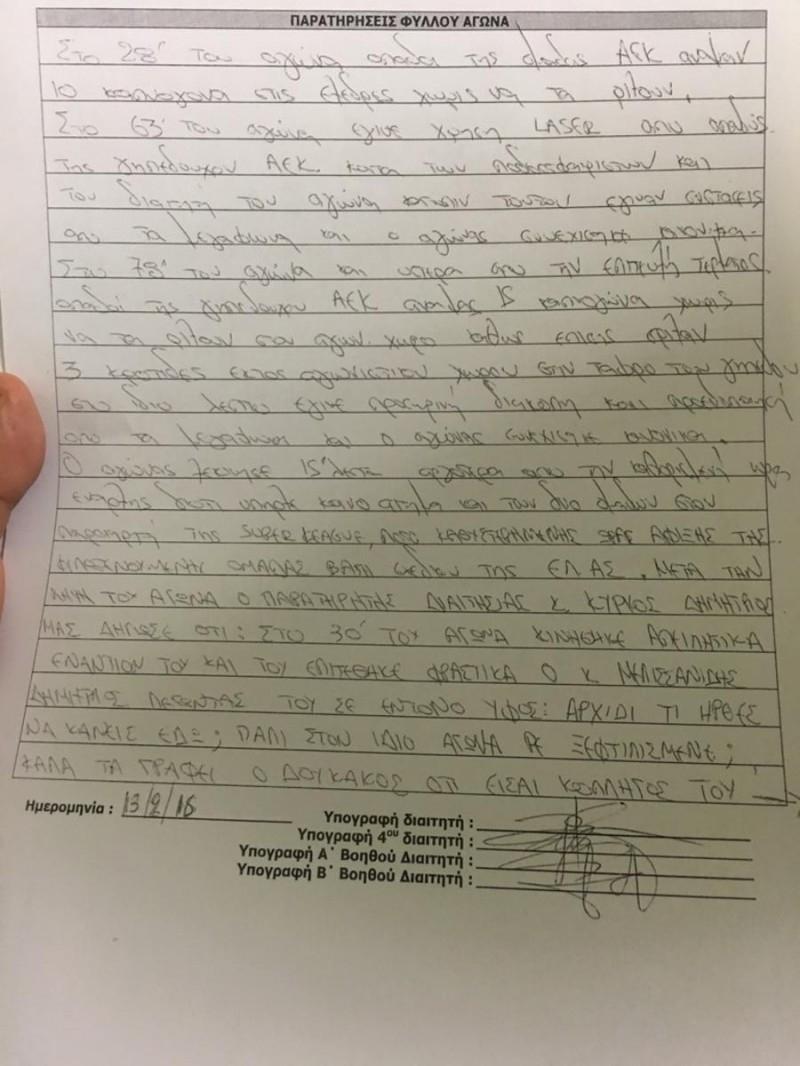 ΠΑΡΑΤΗΡΗΣΕΙΣ ΦΥΛΛΟΥ ΑΓΩΝΑ
Στο 28' του αγώνα οπαδοί της ΑΕΚ αναψαν
10 καπνογονα στις εξεδρες χωρις να τα ριξουν.
Στο 63' του αγώνα εγινε χρηση LASER απο οπαδους
της γηπεδουχου ΑΕΚ κατα των ποδοσφαιριστων και
του διαιτητη του αγώνα τουτου εγιναν συστασεις
απο τα μεγαφωνα και ο αγώνας συνεχιστηκε
Στο 78' του αγώνα και υστερα απο την επιτευξη τερματος
οπαδοί της γηπεδουχου ΑΕΚ αναψαν 15 καπνογόνα χωρις
να τα ριξουν στον αγων. χωρο καθως επισης εριξαν
3 κροτιδες εκτος αγωνιστικου χωρου στην του γηπεδου
στο ιδιο λεπτο εγινε προσωρινή διακοπη και
απο τα μεγαφωνα και ο αγώνας συνεχιστηκε κανονικα.
Ο αγώνας ξεκινησε 15' λεπτα αργοτερα απο την καθορισμενη ωρα
εναρξης διοτι υπηρξε κοινο αιτημα και των δυο στον
παρατηρητή της SUPER LEAGUE, ΛΟΓΩ ΚΑΘΥΣΤΕΡΗΜΕΝΗΣ ΑΦΙΞΗΣ ΤΗΣ
ΦΙΛΟΞΕΝΟΥΜΕΝΗΣ ΟΜΑΔΑΣ ΒΑΣΗ ΣΧΕΔΙΟΥ ΤΗΣ ΕΛ.ΑΣ. ΜΕΤΑ ΤΗΝ
ΛΗΞΗ ΤΟΥ ΑΓΩΝΑ Ο ΠΑΡΑΤΗΡΗΤΗΣ ΔΙΑΙΤΗΣΙΑΣ Κ. ΚΥΡΚΟΣ ΔΗΜΗΤΡΙΟΣ
ΜΑΣ ΔΗΛΩΣΕ ΟΤΙ: ΣΤΟ 30' ΤΟΥ ΑΓΩΝΑ ΚΙΝΗΘΗΚΕ ΑΠΕΙΛΗΤΙΚΑ
ΕΝΑΝΤΙΟΝ ΤΟΥ ΚΑΙ ΤΟΥ ΕΠΙΤΕΘΗΚΕ ΦΡΑΣΤΙΚΑ Ο Κ. ΜΕΛΙΣΣΑΝΙΔΗΣ
ΔΗΜΗΤΡΙΟΣ ΛΕΓΟΝΤΑΣ ΤΟΥ ΣΕ ΕΝΤΟΝΟ ΥΦΟΣ: ΑΡΧΙΔΙ ΤΙ ΗΡΘΕΣ
ΝΑ ΚΑΝΕΙΣ ΕΔΩ; ΠΑΛΙ ΣΤΟΝ ΙΔΙΟ ΑΓΩΝΑ ΡΕ ΞΕΦΤΙΛΙΣΜΕΝΕ;
ΚΑΛΑ ΤΑ ΓΡΑΦΕΙ Ο ΔΟΥΚΑΚΟΣ ΟΤΙ ΕΙΣΑΙ ΚΩΛΛΗΤΟΣ ΤΟΥ →
Ημερομηνία : 13/2/16
Υπογραφή διαιτητή :
Υπογραφή 4ου διαιτητή :
Υπογραφή Α΄ Βοηθού Διαιτητή :
Υπογραφή Β΄ Βοηθού Διαιτητή :